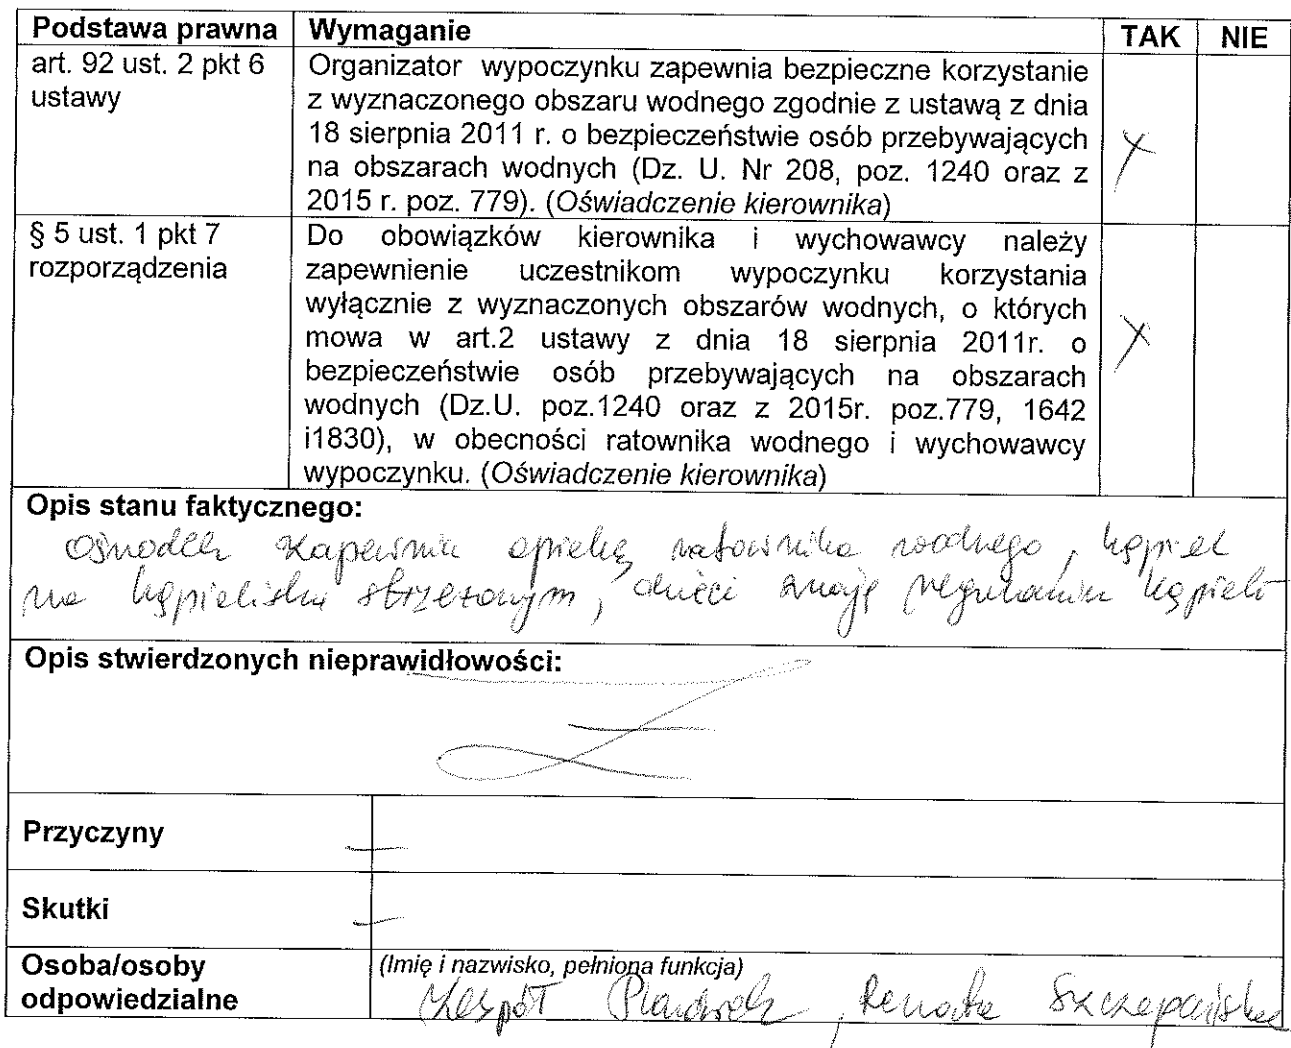 Podstawa prawna Wymaganie TAK NIE
art. 92 ust. 2 pkt 6
ustawy
Organizator wypoczynku zapewnia bezpieczne korzystanie
z wyznaczonego obszaru wodnego zgodnie z ustawą z dnia
18 sierpnia 2011 r. o bezpieczeństwie osób przebywających
na obszarach wodnych (Dz. U. Nr 208, poz. 1240 oraz z
2015 r. poz. 779). (Oświadczenie kierownika)
X
§ 5 ust. 1 pkt 7
rozporządzenia
Do obowiązków kierownika i wychowawcy należy
zapewnienie uczestnikom wypoczynku korzystania
wyłącznie z wyznaczonych obszarów wodnych, o których
mowa w art.2 ustawy z dnia 18 sierpnia 2011r. o
bezpieczeństwie osób przebywających na obszarach
wodnych (Dz.U. poz.1240 oraz z 2015r. poz.779, 1642
i1830), w obecności ratownika wodnego i wychowawcy
wypoczynku. (Oświadczenie kierownika)
X
Opis stanu faktycznego:
Ośrodek zapewnia opiekę ratownika wodnego, kąpiel
na kąpielisku strzeżonym, dzieci znają regulamin kąpieli
Opis stwierdzonych nieprawidłowości:
Przyczyny –
Skutki –
Osoba/osoby
odpowiedzialne
(Imię i nazwisko, pełniona funkcja)
, Renata Szczepańska